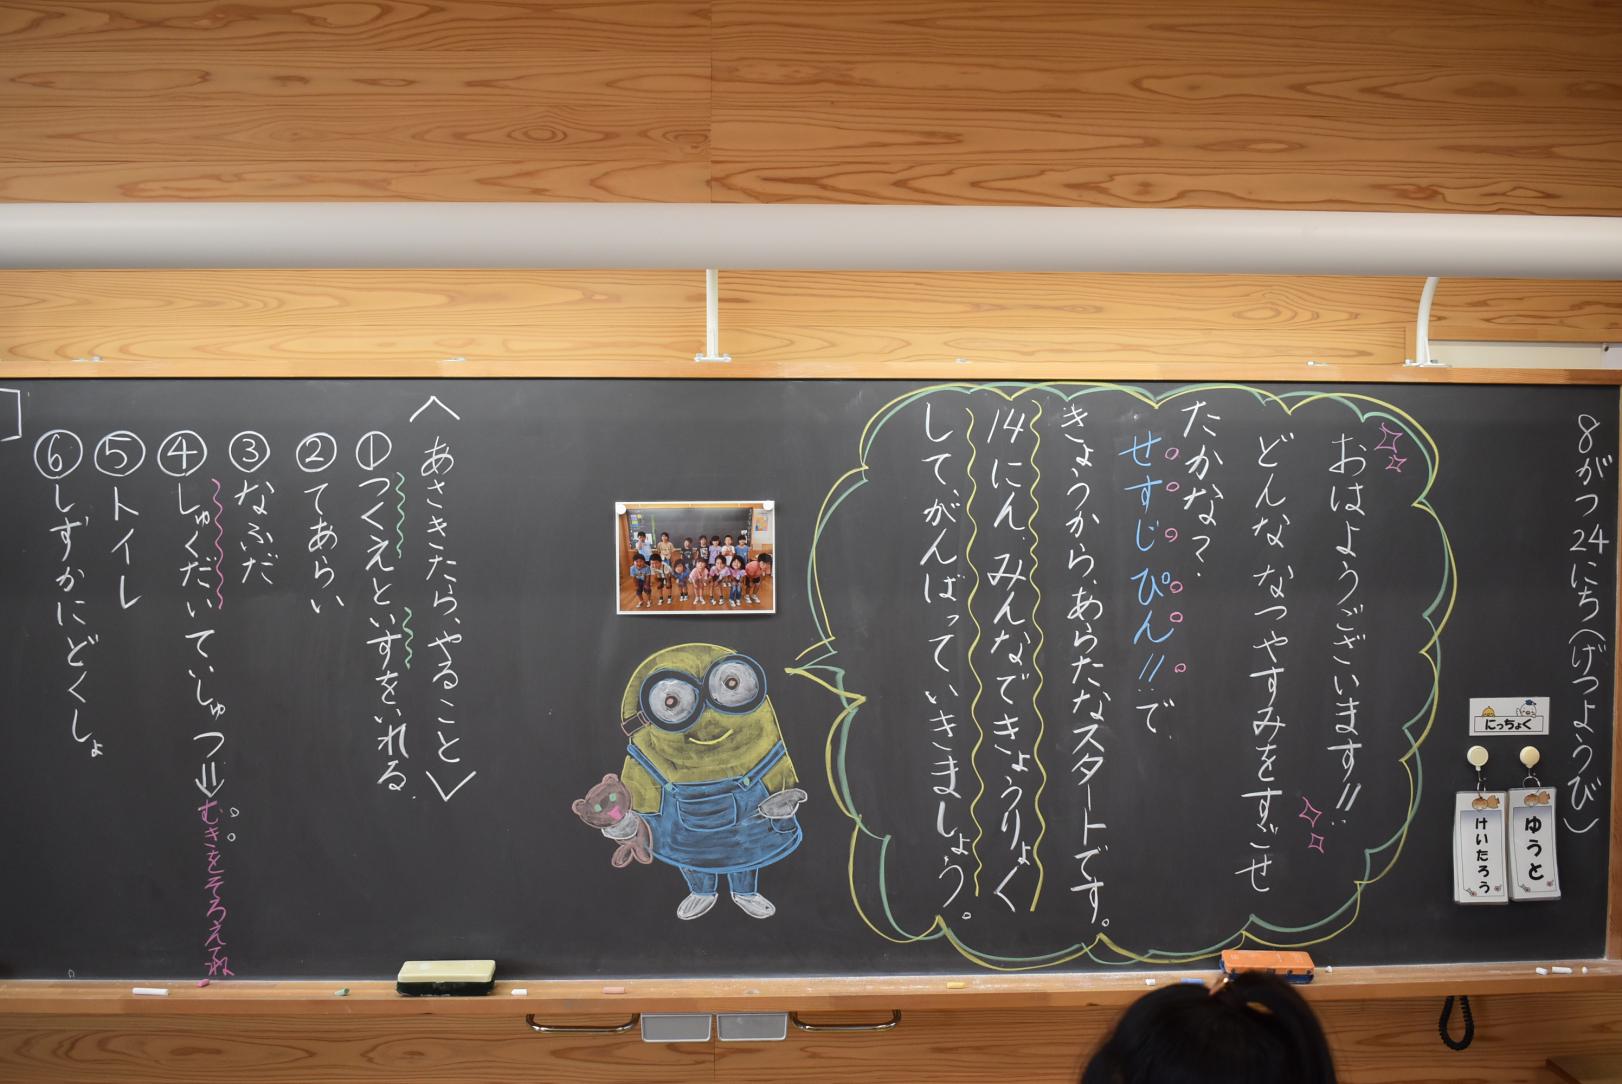 8がつ24にち(げつようび)
にっちょく
ゆうと
けいたろう
おはようございます!!
どんな なつやすみをすごせ
たかな?
せすじ ぴん!!で
きょうから、あらたなスタートです。
14にん、みんなできょうりょく
して、がんばっていきましょう。
〈あさきたら、やること〉
①つくえといすをいれる。
②てあらい
③なふだ
④しゅくだいていしゅつ⇒むきをそろえてね
⑤トイレ
⑥しずかにどくしょ